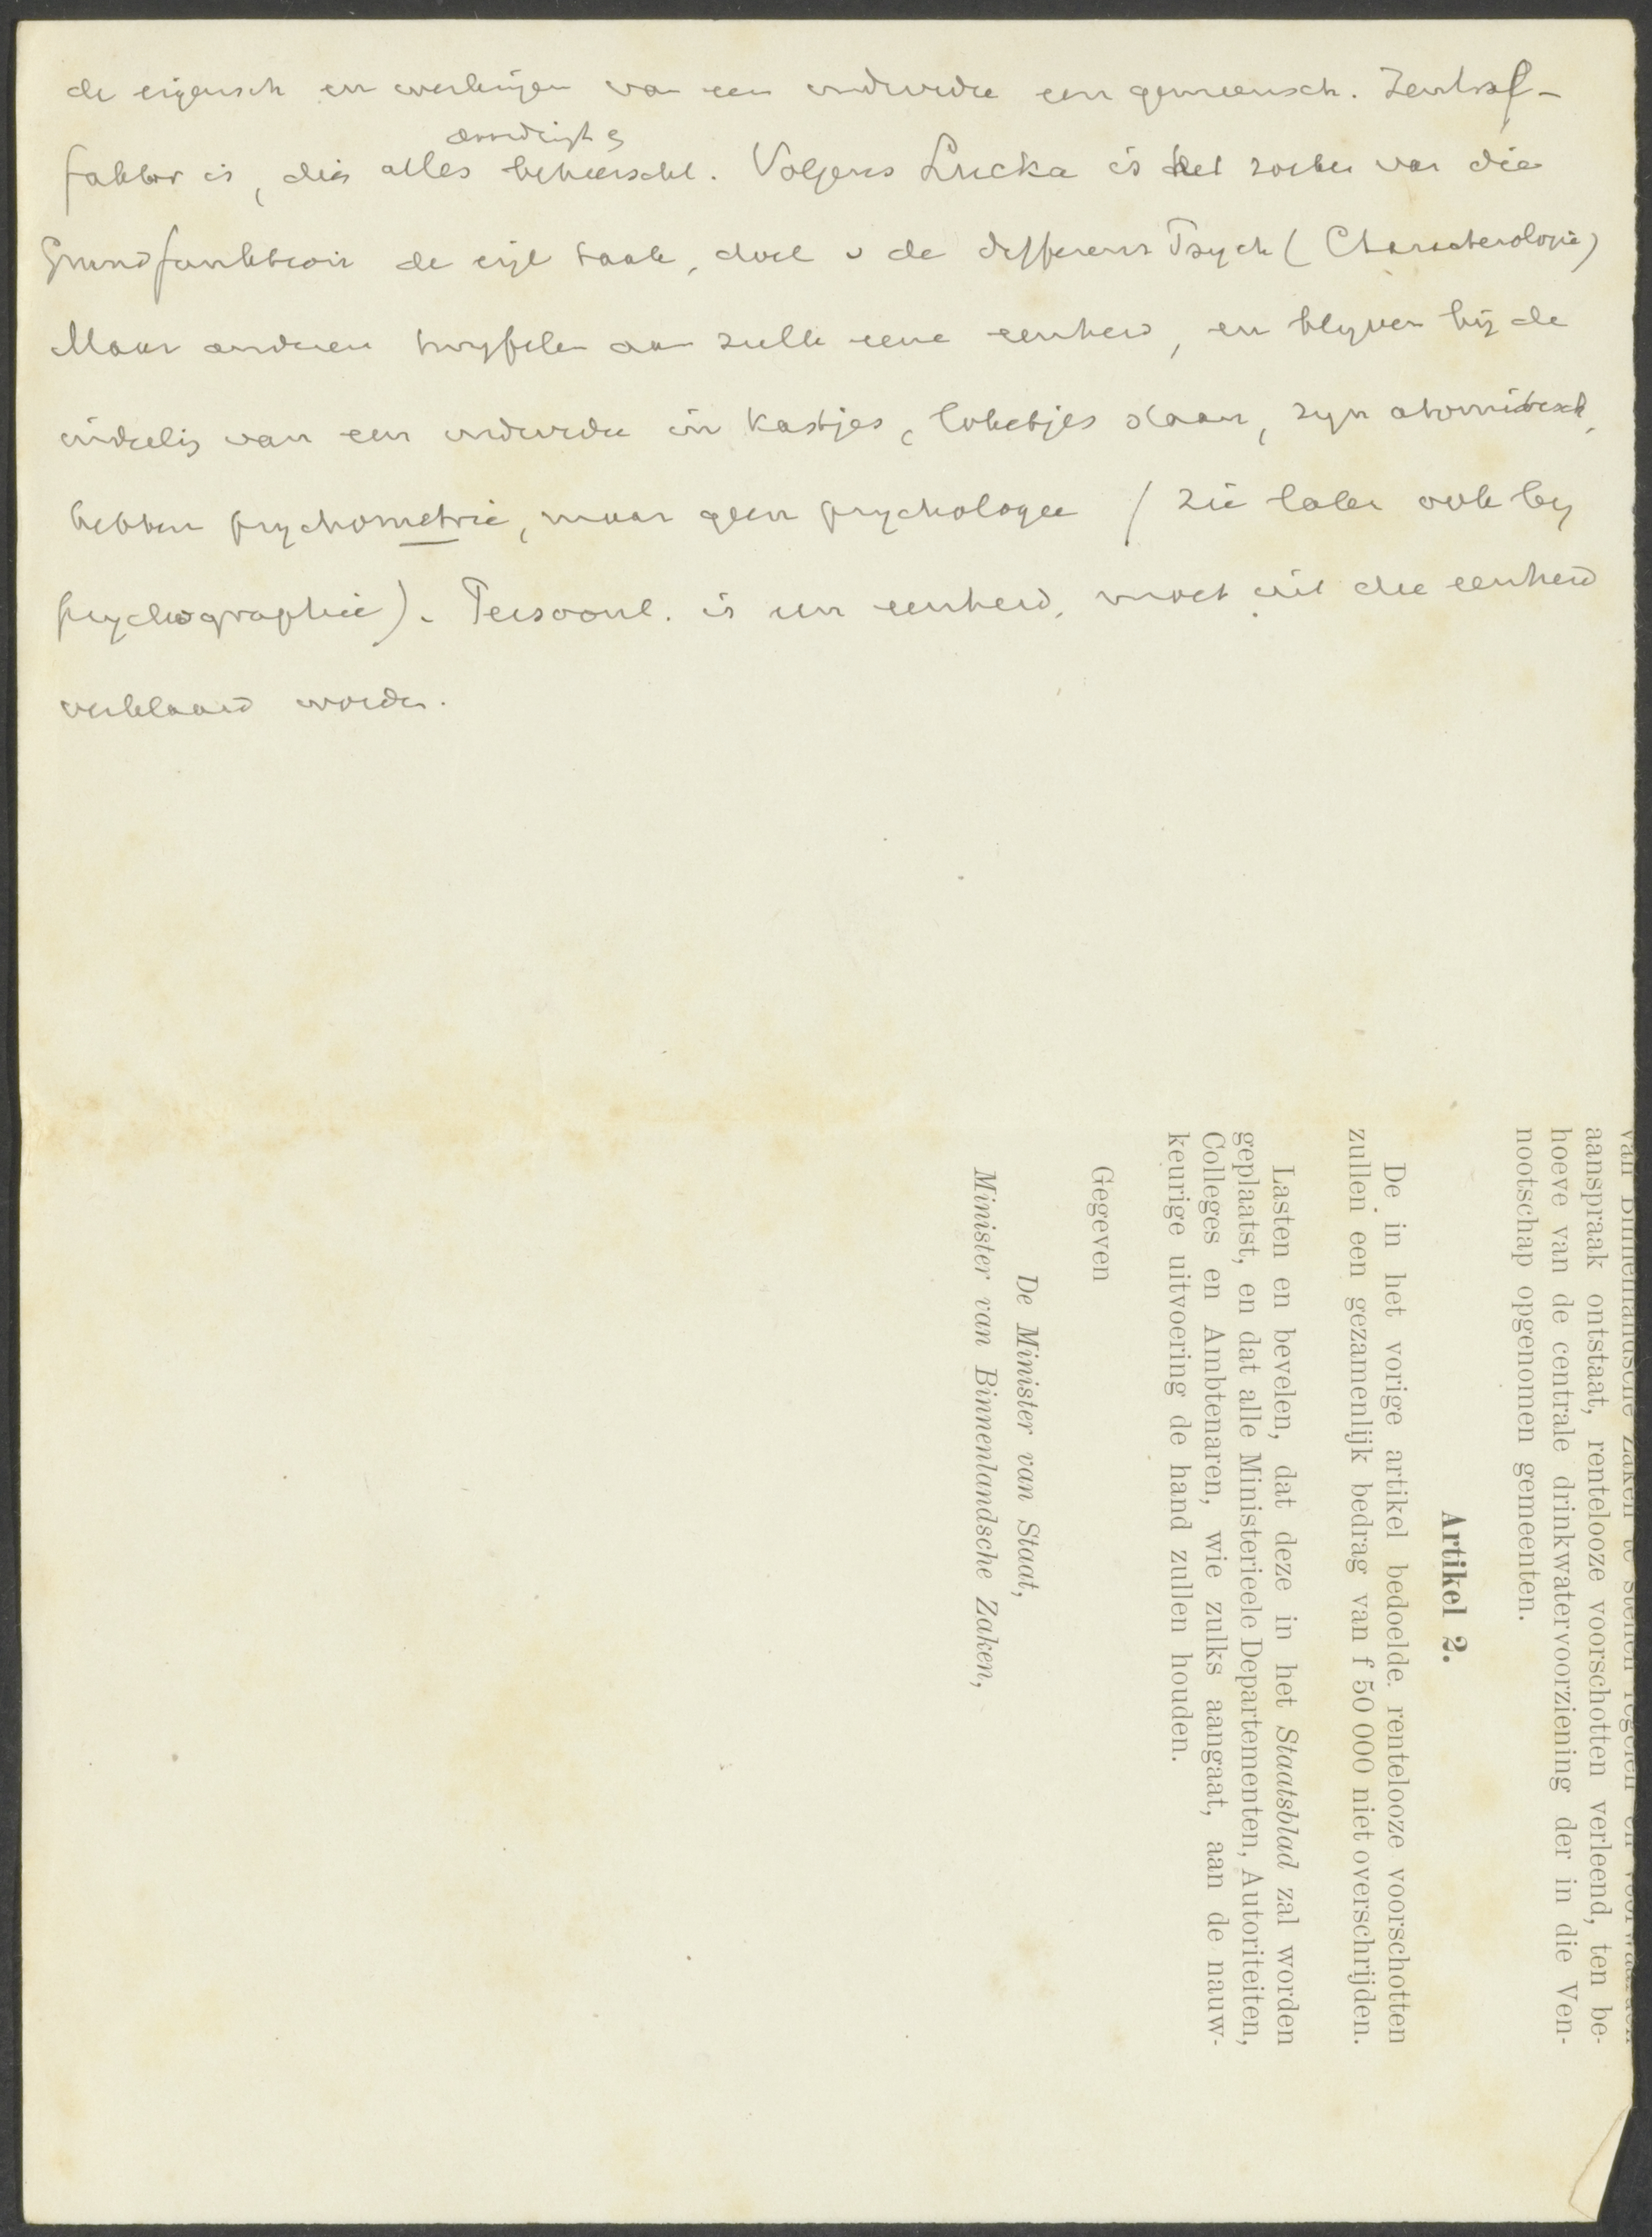 de eigensch en werkingen van een individu een gemeensch. Zentral-
faktor is, die alles beheerscht.
Volgens Lucka is het zoeken van die
Grundfunktion de eigl taak, doel v de differens Psych (Characterologie)
Maar anderen twyfelen aan zulk eene eenheid, en blyven bij de
indeelig van een individu in kastjes, loketjes staan, zyn atomistisch,
hebben psychometrie, maar geen psychologie (zie later ook by
psychographie). Persoonl. is een eenheid, moet uit die eenheid
verklaard worden.
van Binnenlandsche Zaken te stellen regelen en voorwaarden
aanspraak ontstaat, rentelooze voorschotten verleend, ten be-
hoeve van de centrale drinkwatervoorziening der in die Ven-
nootschap opgenomen gemeenten.
Artikel 2.
De in het vorige artikel bedoelde rentelooze voorschotten
zullen een gezamenlijk bedrag van f 50 000 niet overschrijden.
Lasten en bevelen, dat deze in het Staatsblad zal worden
geplaatst, en dat alle Ministerieele Departementen, Autoriteiten,
Colleges en Ambtenaren, wie zulks aangaat, aan de nauw-
keurige uitvoering de hand zullen houden.
Gegeven
De Minister van Staat,
Minister van Binnenlandsche Zaken,